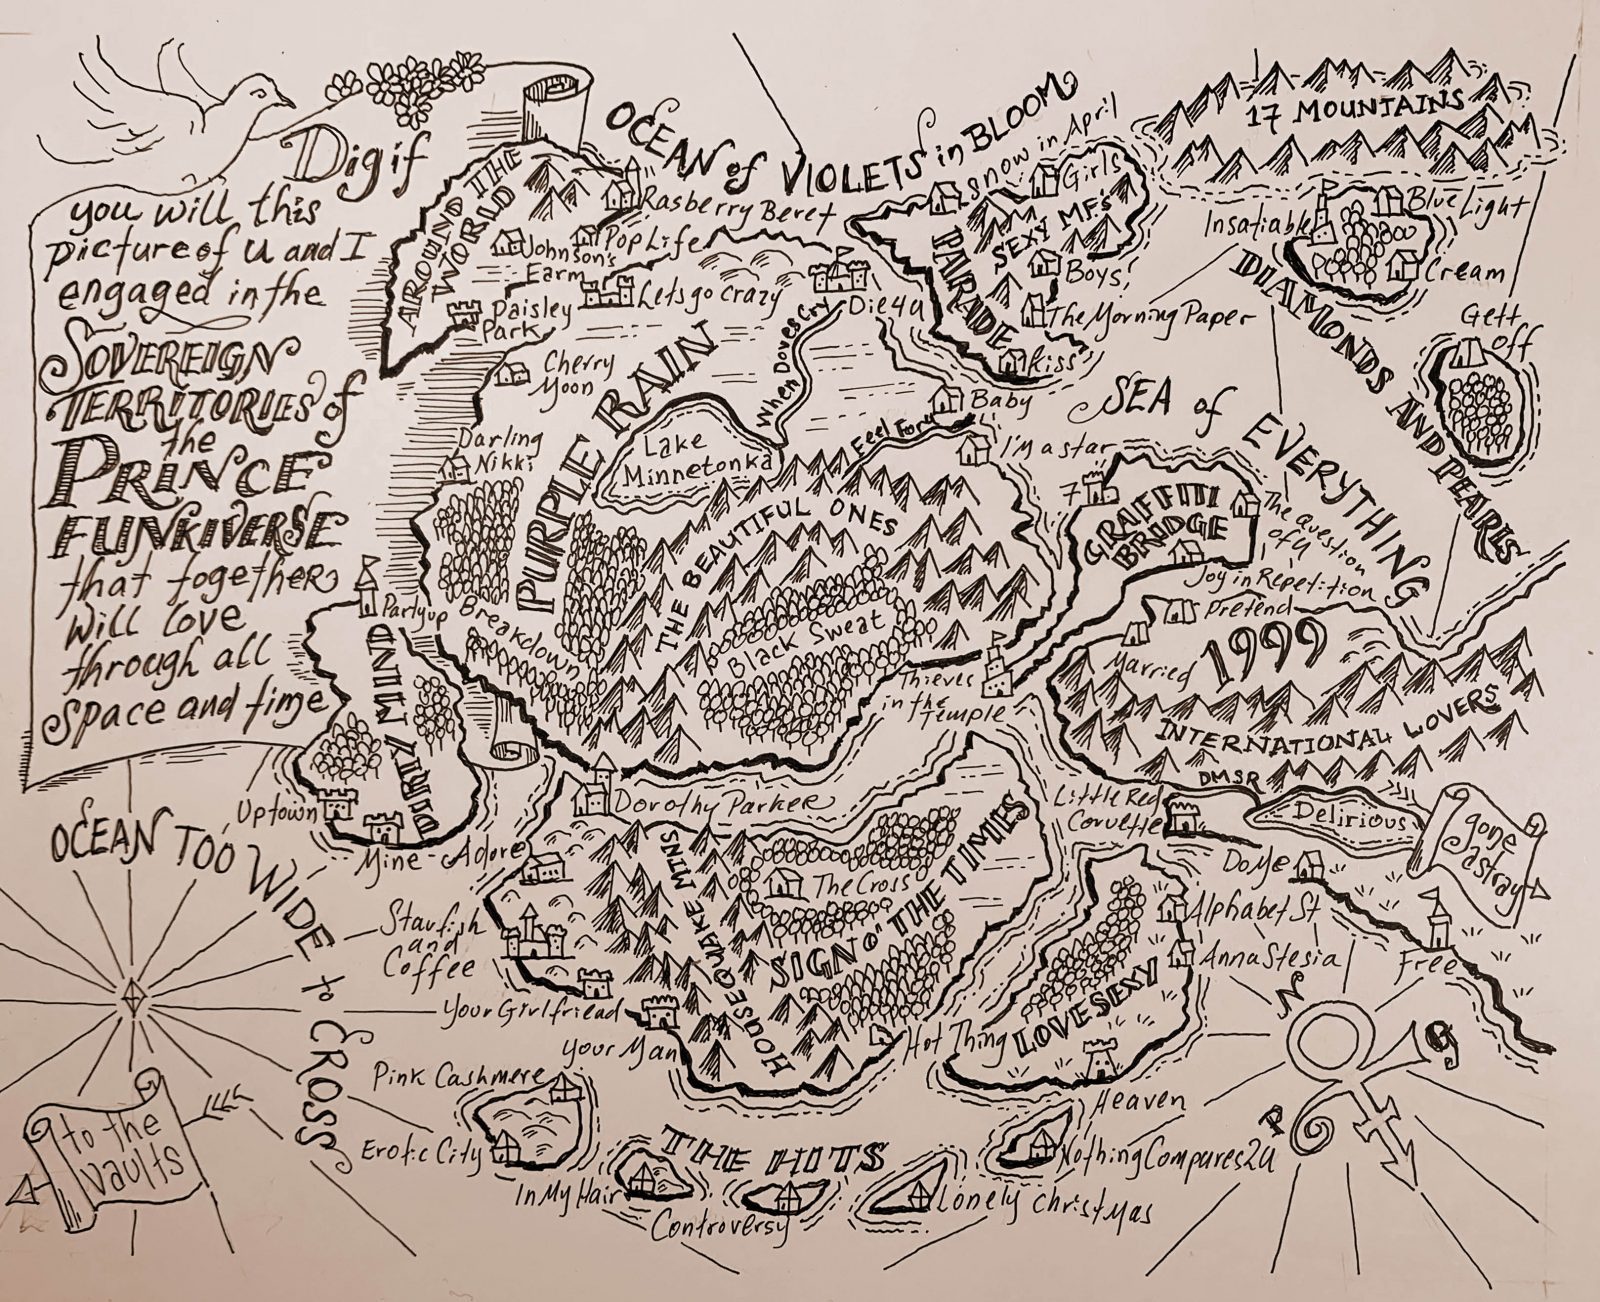 Dig if
you will this
picture of U and I
engaged in the
SOVEREIGN
TERRITORIES of
the
PRINCE
FUNKIVERSE
that together
will love
through all
space and time
OCEAN of VIOLETS in BLOOM
17 MOUNTAINS
AROUND THE
WORLD
Rasberry Beret
Pop Life
Johnson's
Farm
Paisley
Park
Snow in April
Girls
SEXY MFs
Boys!
PARADE
The Morning Paper
Kiss
Insatiable
Blue Light
Cream
Gett
Off
DIAMONDS AND PEARLS
Lets go crazy
Die 4 U
Cherry
Moon
When Doves Cry
PURPLE RAIN
Lake
Minnetonka
Baby
I Feel For U
I'm a star
Darling
Nikki
THE BEAUTIFUL ONES
Black Sweat
Breakdown
SEA of EVERYTHING
7
GRAFFITI
BRIDGE
The Question
of U
Joy in Repetition
Thieves
in the Temple
Partyup
DIRTY MIND
Uptown
Mine
Pretend
Married
1999
INTERNATIONAL LOVERS
DMSR
Little Red
Corvette
Delirious
gone
astray
Do Me
Free
OCEAN TOO WIDE to CROSS
Dorothy Parker
Adore
HOUSEQUAKE MTNS
The Cross
SIGN O' THE TIMES
Starfish
and
Coffee
Your Girlfriend
Your Man
Hot Thing
Alphabet St
Anna Stesia
LOVESEXY
Heaven
Pink Cashmere
Erotic City
THE HITS
In My Hair
Controversy
Lonely Christmas
Nothing Compares 2 U
to the
vaults
N
P